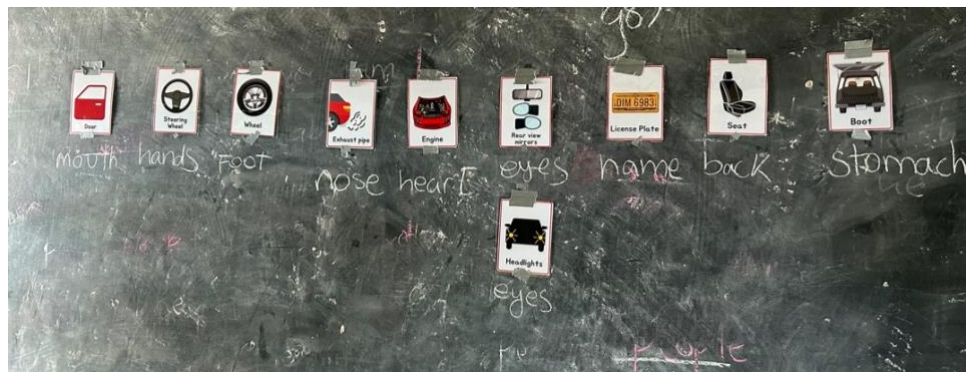 go
Door
Steering
Wheel
Wheel
Exhaust pipe
Engine
Rear view
mirrors
DIM 6983
License Plate
Seat
Boot
mouth hands foot nose heart eyes name back stomach
Headlights
eyes